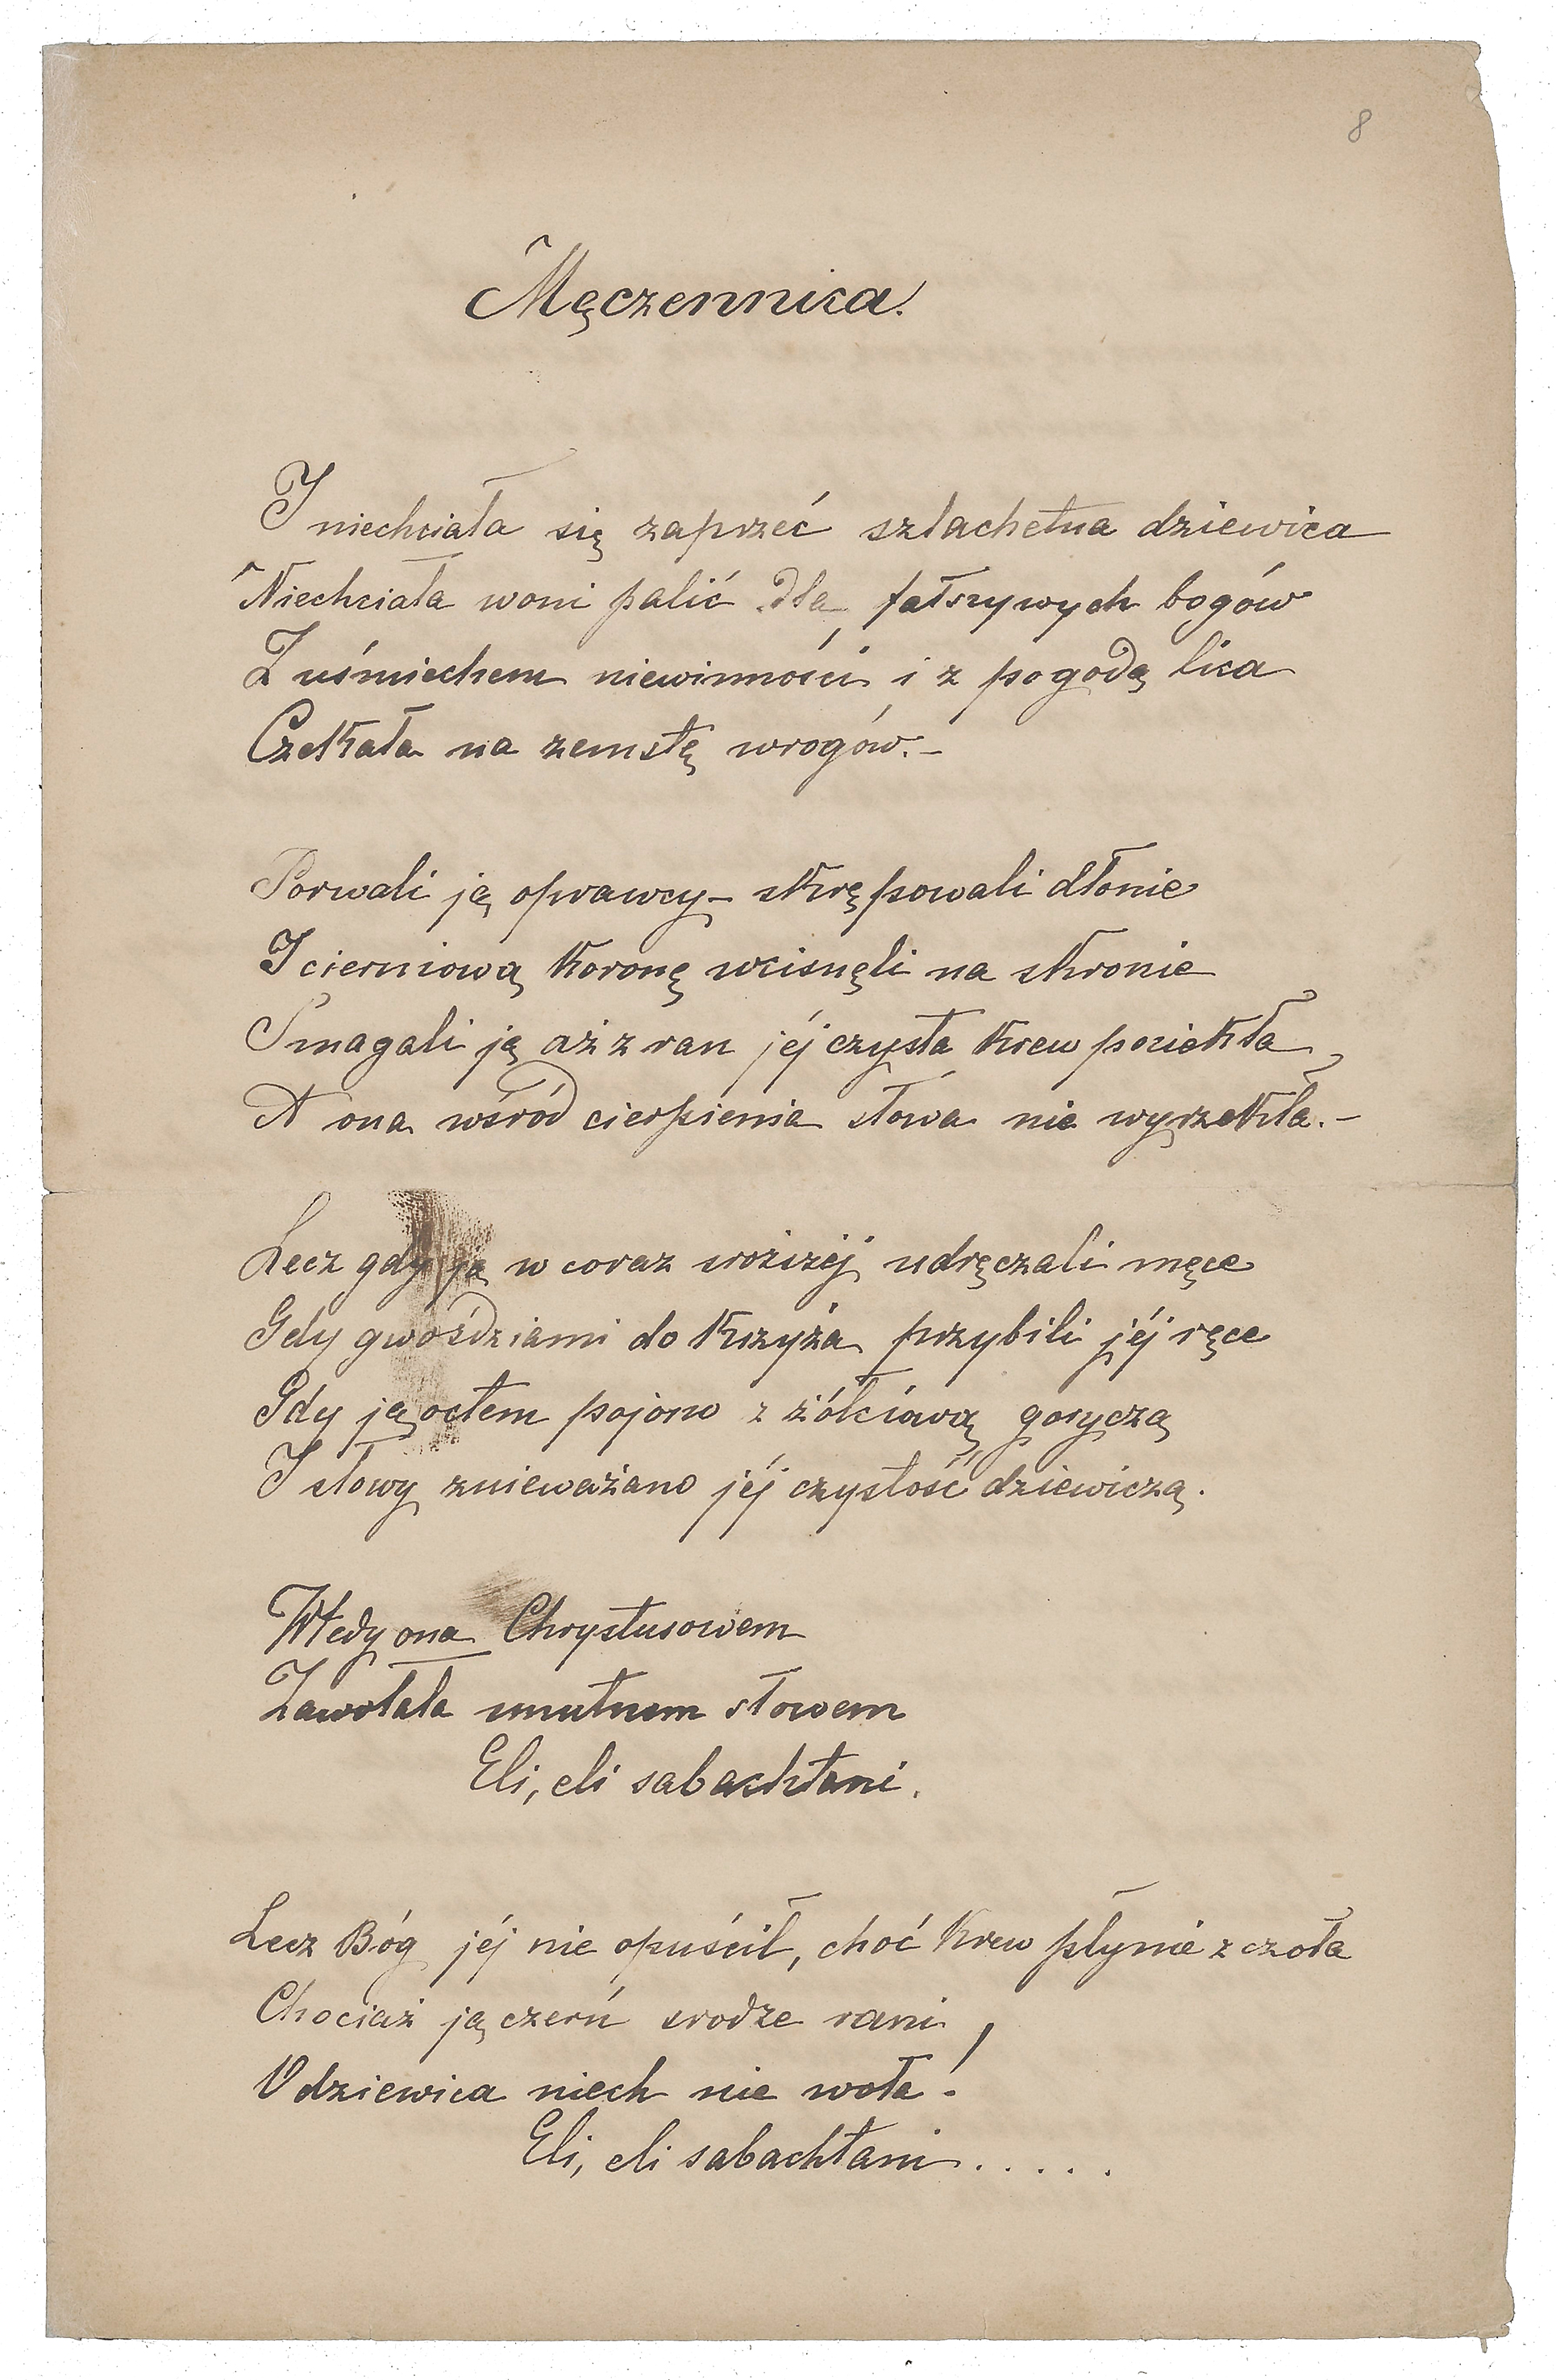 8
Męczennica.
I niechciała się zaprzeć szlachetna dziewica
Niechciała woni palić dla fałszywych bogów
Z uśmiechem niewinności i z pogodą lica
Czekała na zemstę wrogów. –
Porwali ją oprawcy – skrępowali dłonie
I cierniową koronę wcisnęli na skronie
Smagali ją aż z ran jéj czysta krew pociekła
A ona wśród cierpienia słowa nie wyrzekła. –
Lecz gdy ją w coraz sroższéj udręczali męce
Gdy gwoździami do krzyża przybili jéj ręce
Gdy ją octem pojono z żółciową goryczą
I słowy znieważano jéj czystość dziewiczą.
Wtedy ona Chrystusowem
Zawołała smutnem słowem
Eli, eli sabachtani.
Lecz Bóg jéj nie opuścił, choć krew płynie z czoła
Chociaż ją czerń srodze rani,
O dziewica niech nie woła!
Eli, eli sabachtani.....